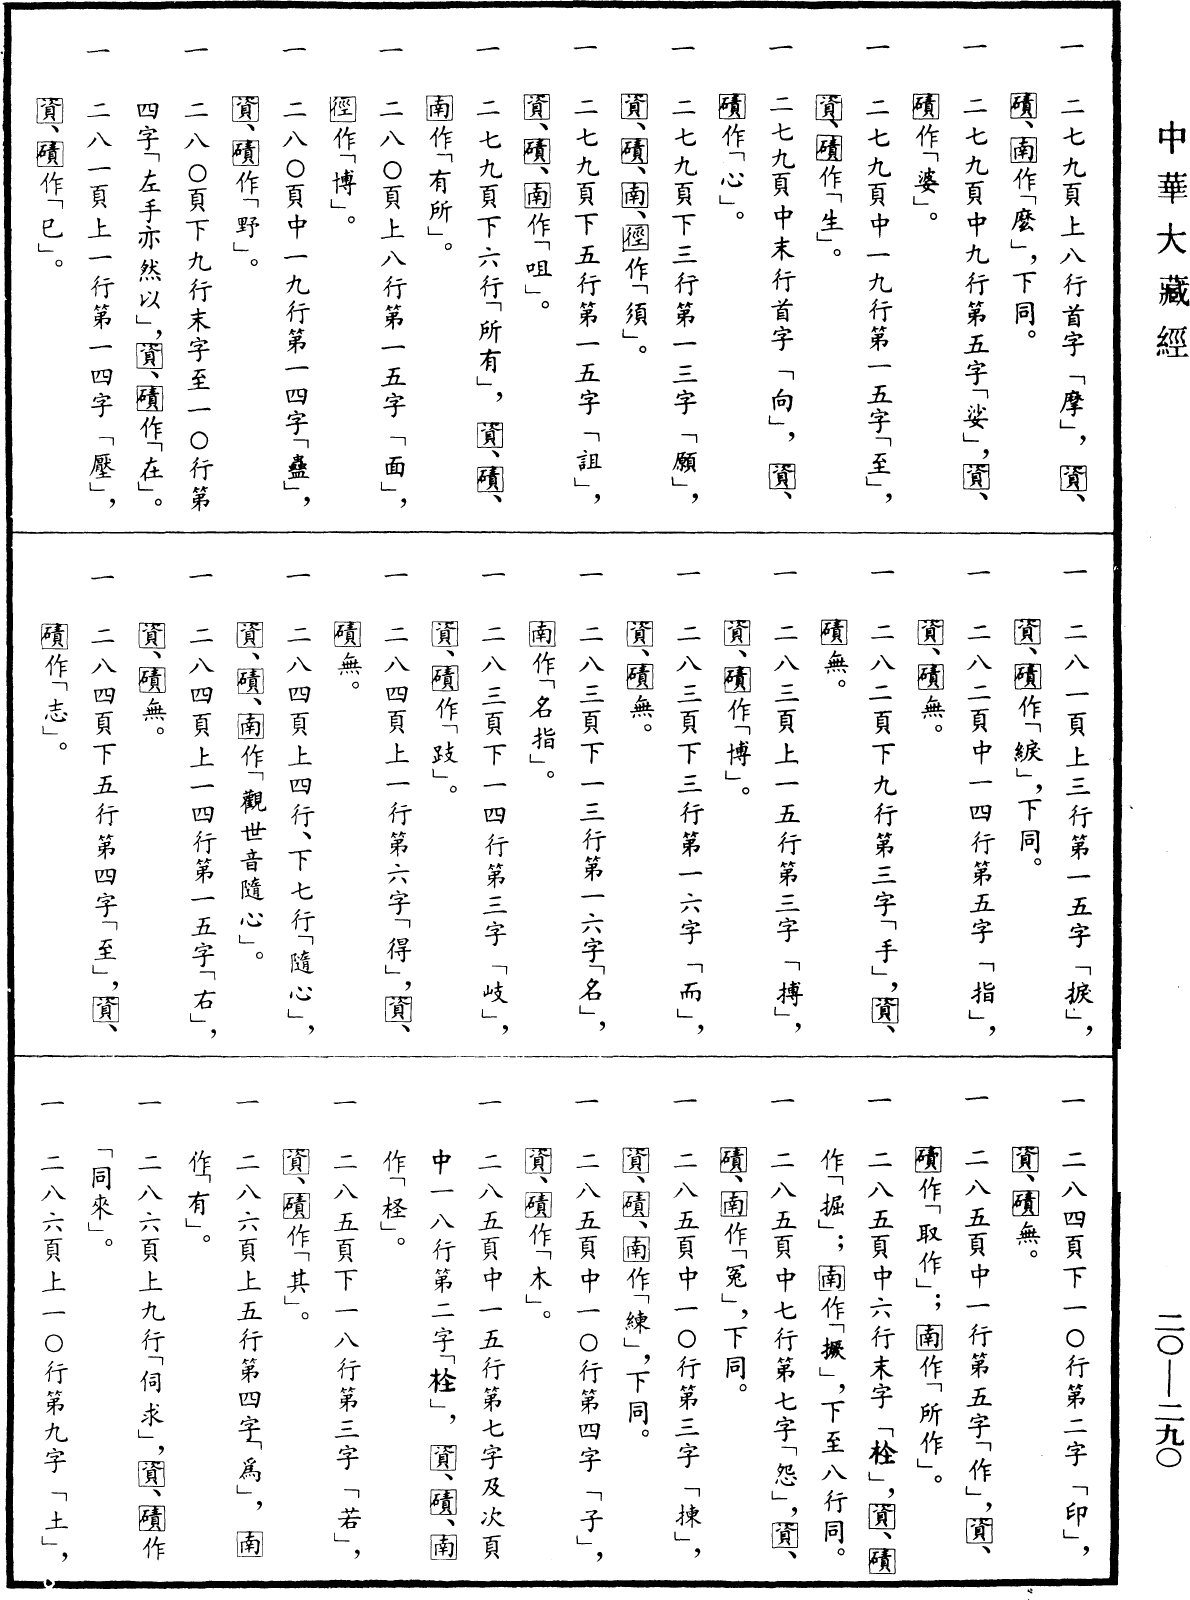 中華大藏經
一　二七九頁上八行首字「摩」，資、
磧、南作「麼」，下同。
一　二七九頁中九行第五字「娑」，資、
磧作「婆」。
一　二七九頁中一九行第一五字「至」，
資、磧作「生」。
一　二七九頁中末行首字「向」，資、
磧作「心」。
一　二七九頁下三行第一三字「願」，
資、磧、南、徑作「須」。
一　二七九頁下五行第一五字「詛」，
資、磧、南作「咀」。
一　二七九頁下六行「所有」，資、磧、
南作「有所」。
一　二八〇頁上八行第一五字「面」，
徑作「博」。
一　二八〇頁中一九行第一四字「蠱」，
資、磧作「野」。
一　二八〇頁下九行末字至一〇行第
四字「左手亦然以」，資、磧作「在」。
一　二八一頁上一行第一四字「壓」，
資、磧作「已」。
一　二八一頁上三行第一五字「捩」，
資、磧作「綟」，下同。
一　二八二頁中一四行第五字「指」，
資、磧無。
一　二八二頁下九行第三字「手」，資、
磧無。
一　二八三頁上一五行第三字「搏」，
資、磧作「博」。
一　二八三頁下三行第一六字「而」，
資、磧無。
一　二八三頁下一三行第一六字「名」，
南作「名指」。
一　二八三頁下一四行第三字「岐」，
資、磧作「跂」。
一　二八四頁上一行第六字「得」，資、
磧無。
一　二八四頁上四行、下七行「隨心」，
資、磧、南作「觀世音隨心」。
一　二八四頁上一四行第一五字「右」，
資、磧無。
一　二八四頁下五行第四字「至」，資、
磧作「志」。
一　二八四頁下一〇行第二字「印」，
資、磧無。
一　二八五頁中一行第五字「作」，資、
磧作「取作」；南作「所作」。
一　二八五頁中六行末字「栓」，資、磧
作「掘」；南作「撅」，下至八行同。
一　二八五頁中七行第七字「怨」，資、
磧、南作「冤」，下同。
一　二八五頁中一〇行第三字「揀」，
資、磧、南作「練」，下同。
一　二八五頁中一〇行第四字「子」，
資、磧作「木」。
一　二八五頁中一五行第七字及次頁
中一八行第二字「栓」，資、磧、南
作「柽」。
一　二八五頁下一八行第三字「若」，
資、磧作「其」。
一　二八六頁上五行第四字「爲」，南
作「有」。
一　二八六頁上九行「伺求」，資、磧作
「同來」。
一　二八六頁上一〇行第九字「土」，
二〇—二九〇